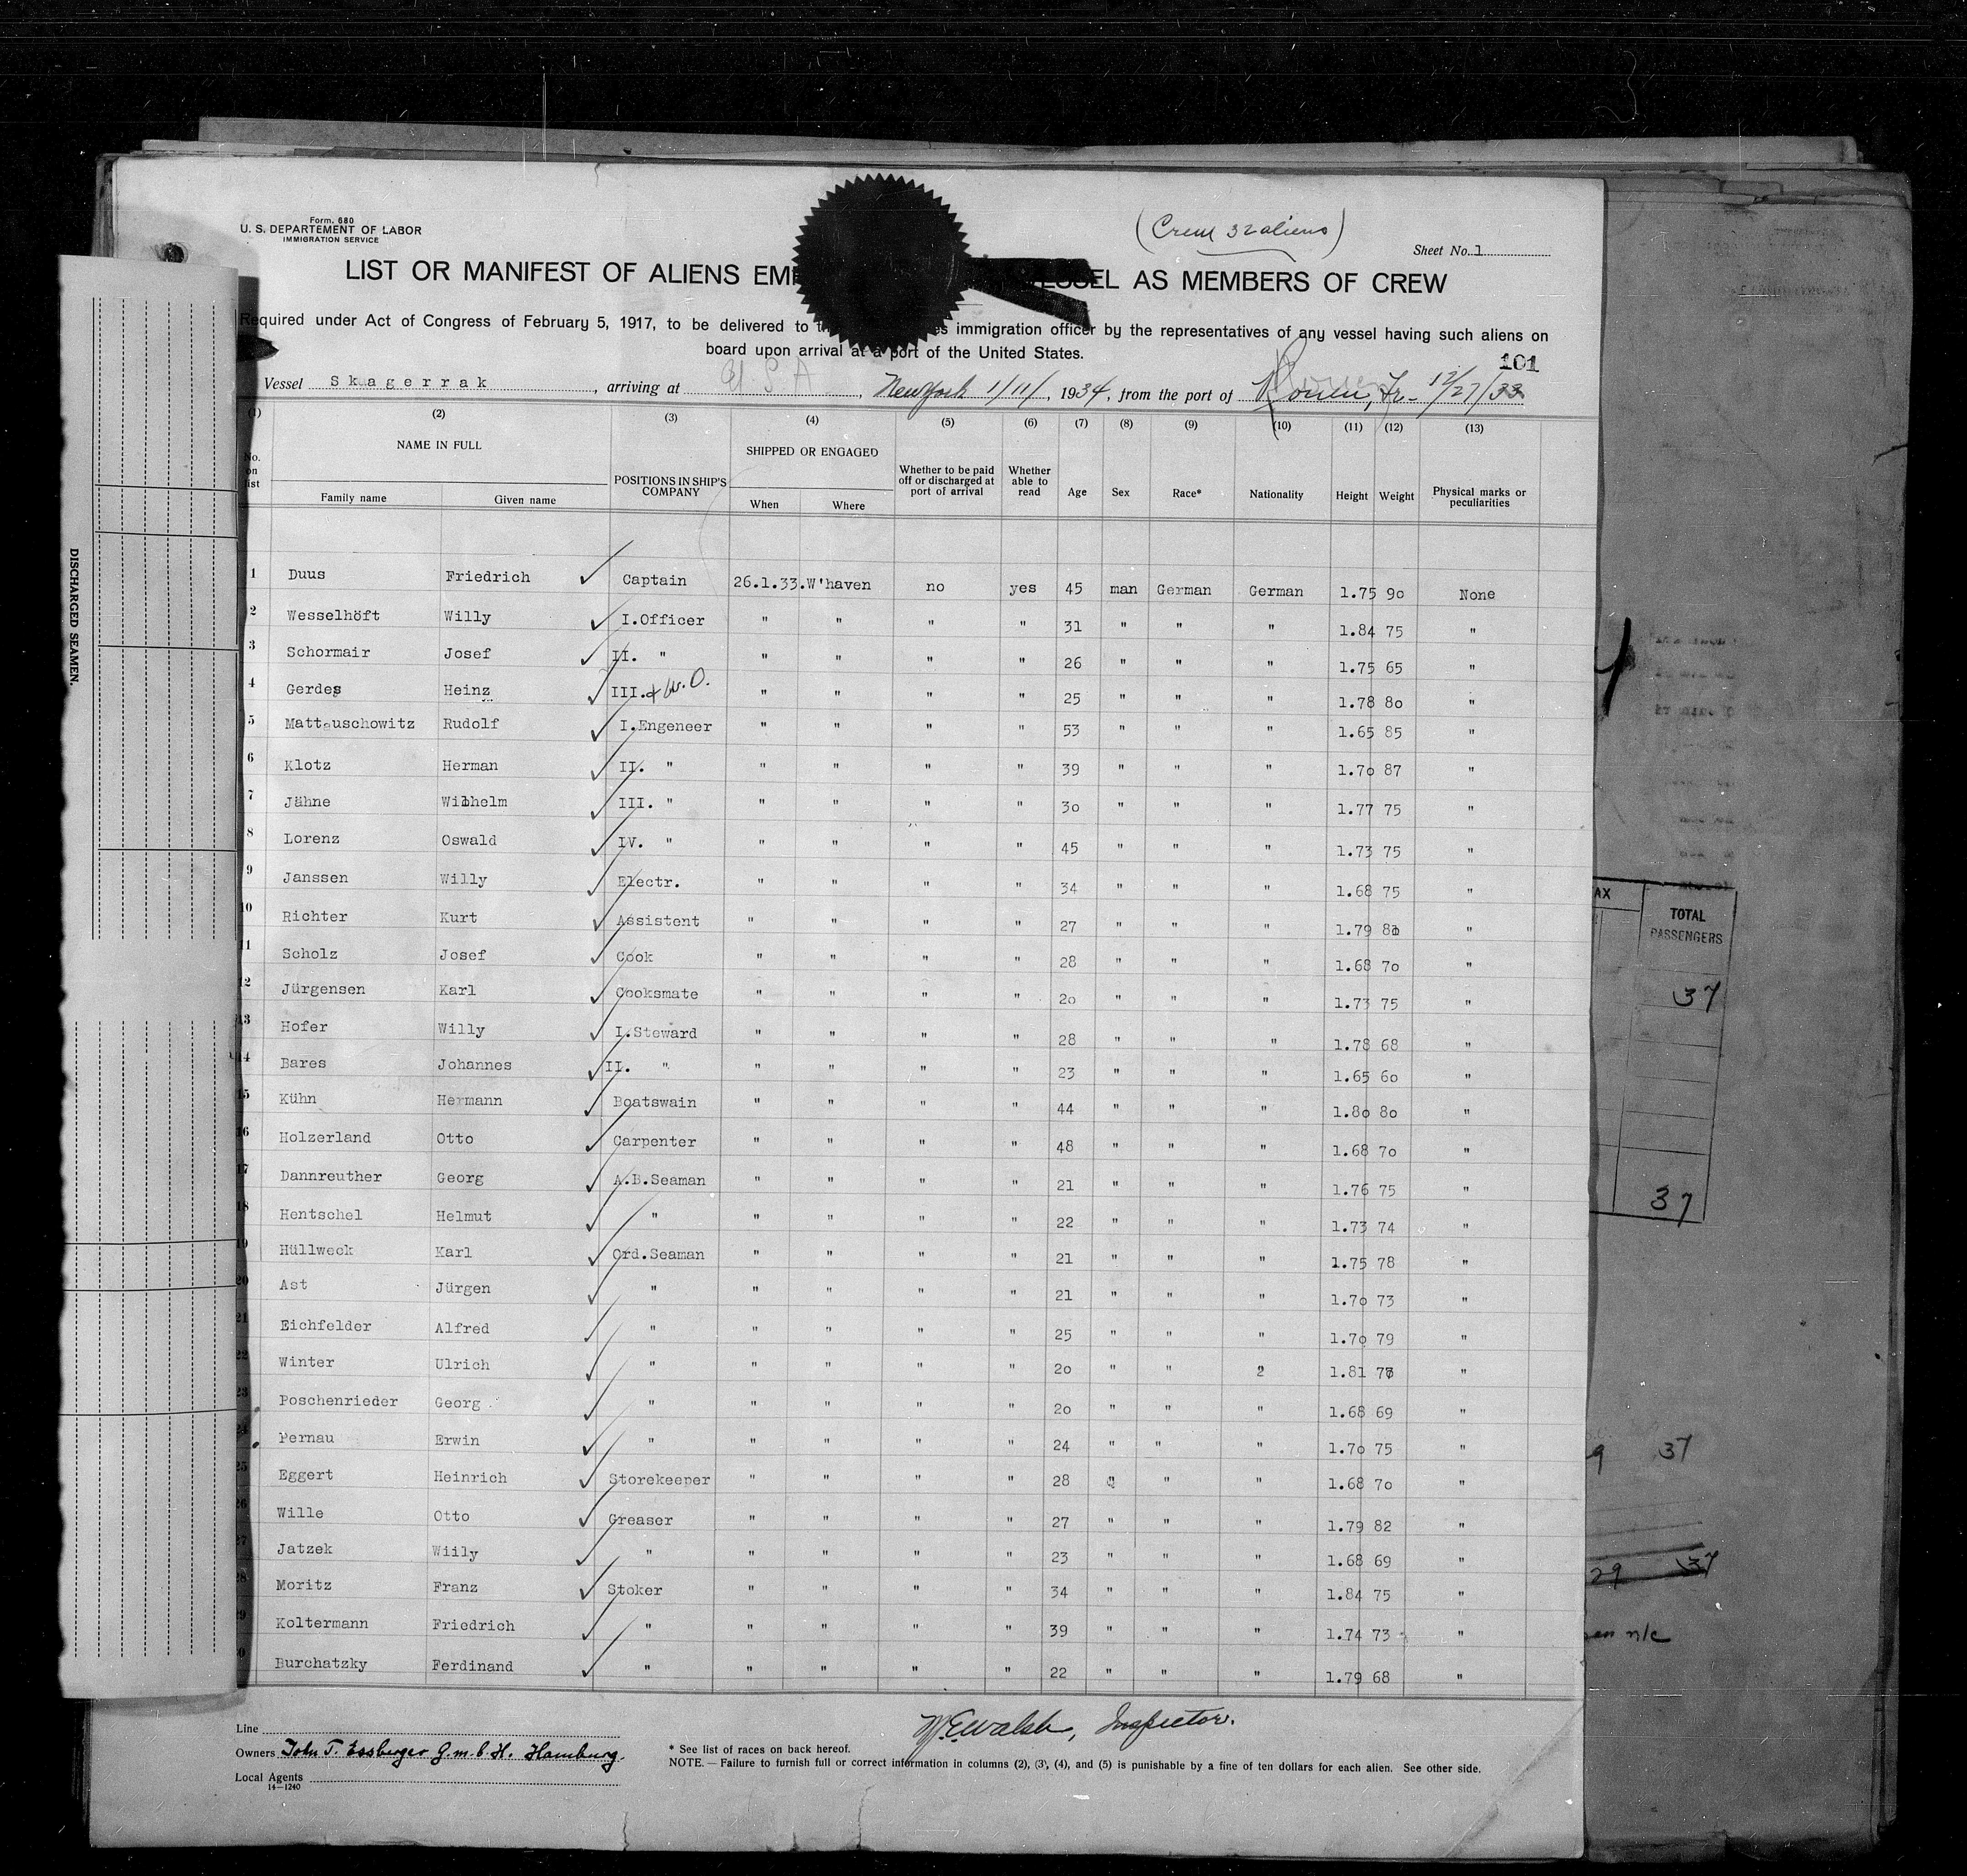 Form. 680
U. S. DEPARTEMENT OF LABOR
IMMIGRATION SERVICE
(Crew 32 aliens)
Sheet No. 1
LIST OR MANIFEST OF ALIENS EM VESSEL AS MEMBERS OF CREW
Required under Act of Congress of February 5, 1917, to be delivered to immigration officer by the representatives of any vessel having such aliens on
board upon arrival at a port of the United States.
101
Vessel Skagerrak, arriving at U S A, New York 1/11/, 1934, from the port of Rouen, Fr- 12/27/33
(1) (2) (3) (4) (5) (6) (7) (8) (9) (10) (11) (12) (13)
No. on list NAME IN FULL Family name Given name POSITIONS IN SHIP'S COMPANY SHIPPED OR ENGAGED When Where Whether to be paid off or discharged at port of arrival Whether able to read Age Sex Race* Nationality Height Weight Physical marks or peculiarities
1 Duus Friedrich Captain 26.1.33. W'haven no yes 45 man German German 1.75 90 None
2 Wesselhöft Willy I.Officer " " " " 31 " " " 1.84 75 "
3 Schormair Josef II. " " " " " 26 " " " 1.75 65 "
4 Gerdes Heinz III. + W. O. " " " " 25 " " " 1.78 80 "
5 Mattauschowitz Rudolf I.Engeneer " " " " 53 " " " 1.65 85 "
6 Klotz Herman II. " " " " " 39 " " " 1.70 87 "
7 Jähne Wilhelm III. " " " " " 30 " " " 1.77 75 "
8 Lorenz Oswald IV. " " " " " 45 " " " 1.73 75 "
9 Janssen Willy Electr. " " " " 34 " " " 1.68 75 "
10 Richter Kurt Assistent " " " " 27 " " " 1.79 "
11 Scholz Josef Cook " " " " 28 " " " 1.68 70 "
12 Jürgensen Karl Cooksmate " " " " 20 " " " 1.73 75 "
13 Hofer Willy I.Steward " " " " 28 " " " 1.78 68 "
14 Bares Johannes II. " " " " " 23 " " " 1.65 60 "
15 Kühn Hermann Boatswain " " " " 44 " " " 1.80 80 "
16 Holzerland Otto Carpenter " " " " 48 " " " 1.68 70 "
17 Dannreuther Georg A.B.Seaman " " " " 21 " " " 1.76 75 "
18 Hentschel Helmut " " " " " 22 " " " 1.73 74 "
19 Hüllweck Karl Ord.Seaman " " " " 21 " " " 1.75 78 "
20 Ast Jürgen " " " " " 21 " " " 1.70 73 "
21 Eichfelder Alfred " " " " " 25 " " " 1.70 79 "
22 Winter Ulrich " " " " " 20 " " 2 1.81 "
23 Poschenrieder Georg " " " " " 20 " " " 1.68 69 "
24 Pernau Erwin " " " " " 24 " " " 1.70 75 "
25 Eggert Heinrich Storekeeper " " " " 28 " " " 1.68 70 "
26 Wille Otto Greaser " " " " 27 " " " 1.79 82 "
27 Jatzek Wiily " " " " " 23 " " " 1.68 69 "
28 Moritz Franz Stoker " " " " 34 " " " 1.84 75 "
29 Koltermann Friedrich " " " " " 39 " " " 1.74 73 "
0 Burchatzky Ferdinand " " " " " 22 " " " 1.79 68 "
W.E. Walsh, Inspector.
Line
Owners John T. Essberger G.m.b.H. Hamburg.
Local Agents
14—1240
* See list of races on back hereof.
NOTE. — Failure to furnish full or correct information in columns (2), (3), (4), and (5) is punishable by a fine of ten dollars for each alien. See other side.
DISCHARGED SEAMEN.
AX
TOTAL
PASSENGERS
37
37
9 37
29 37
n/c